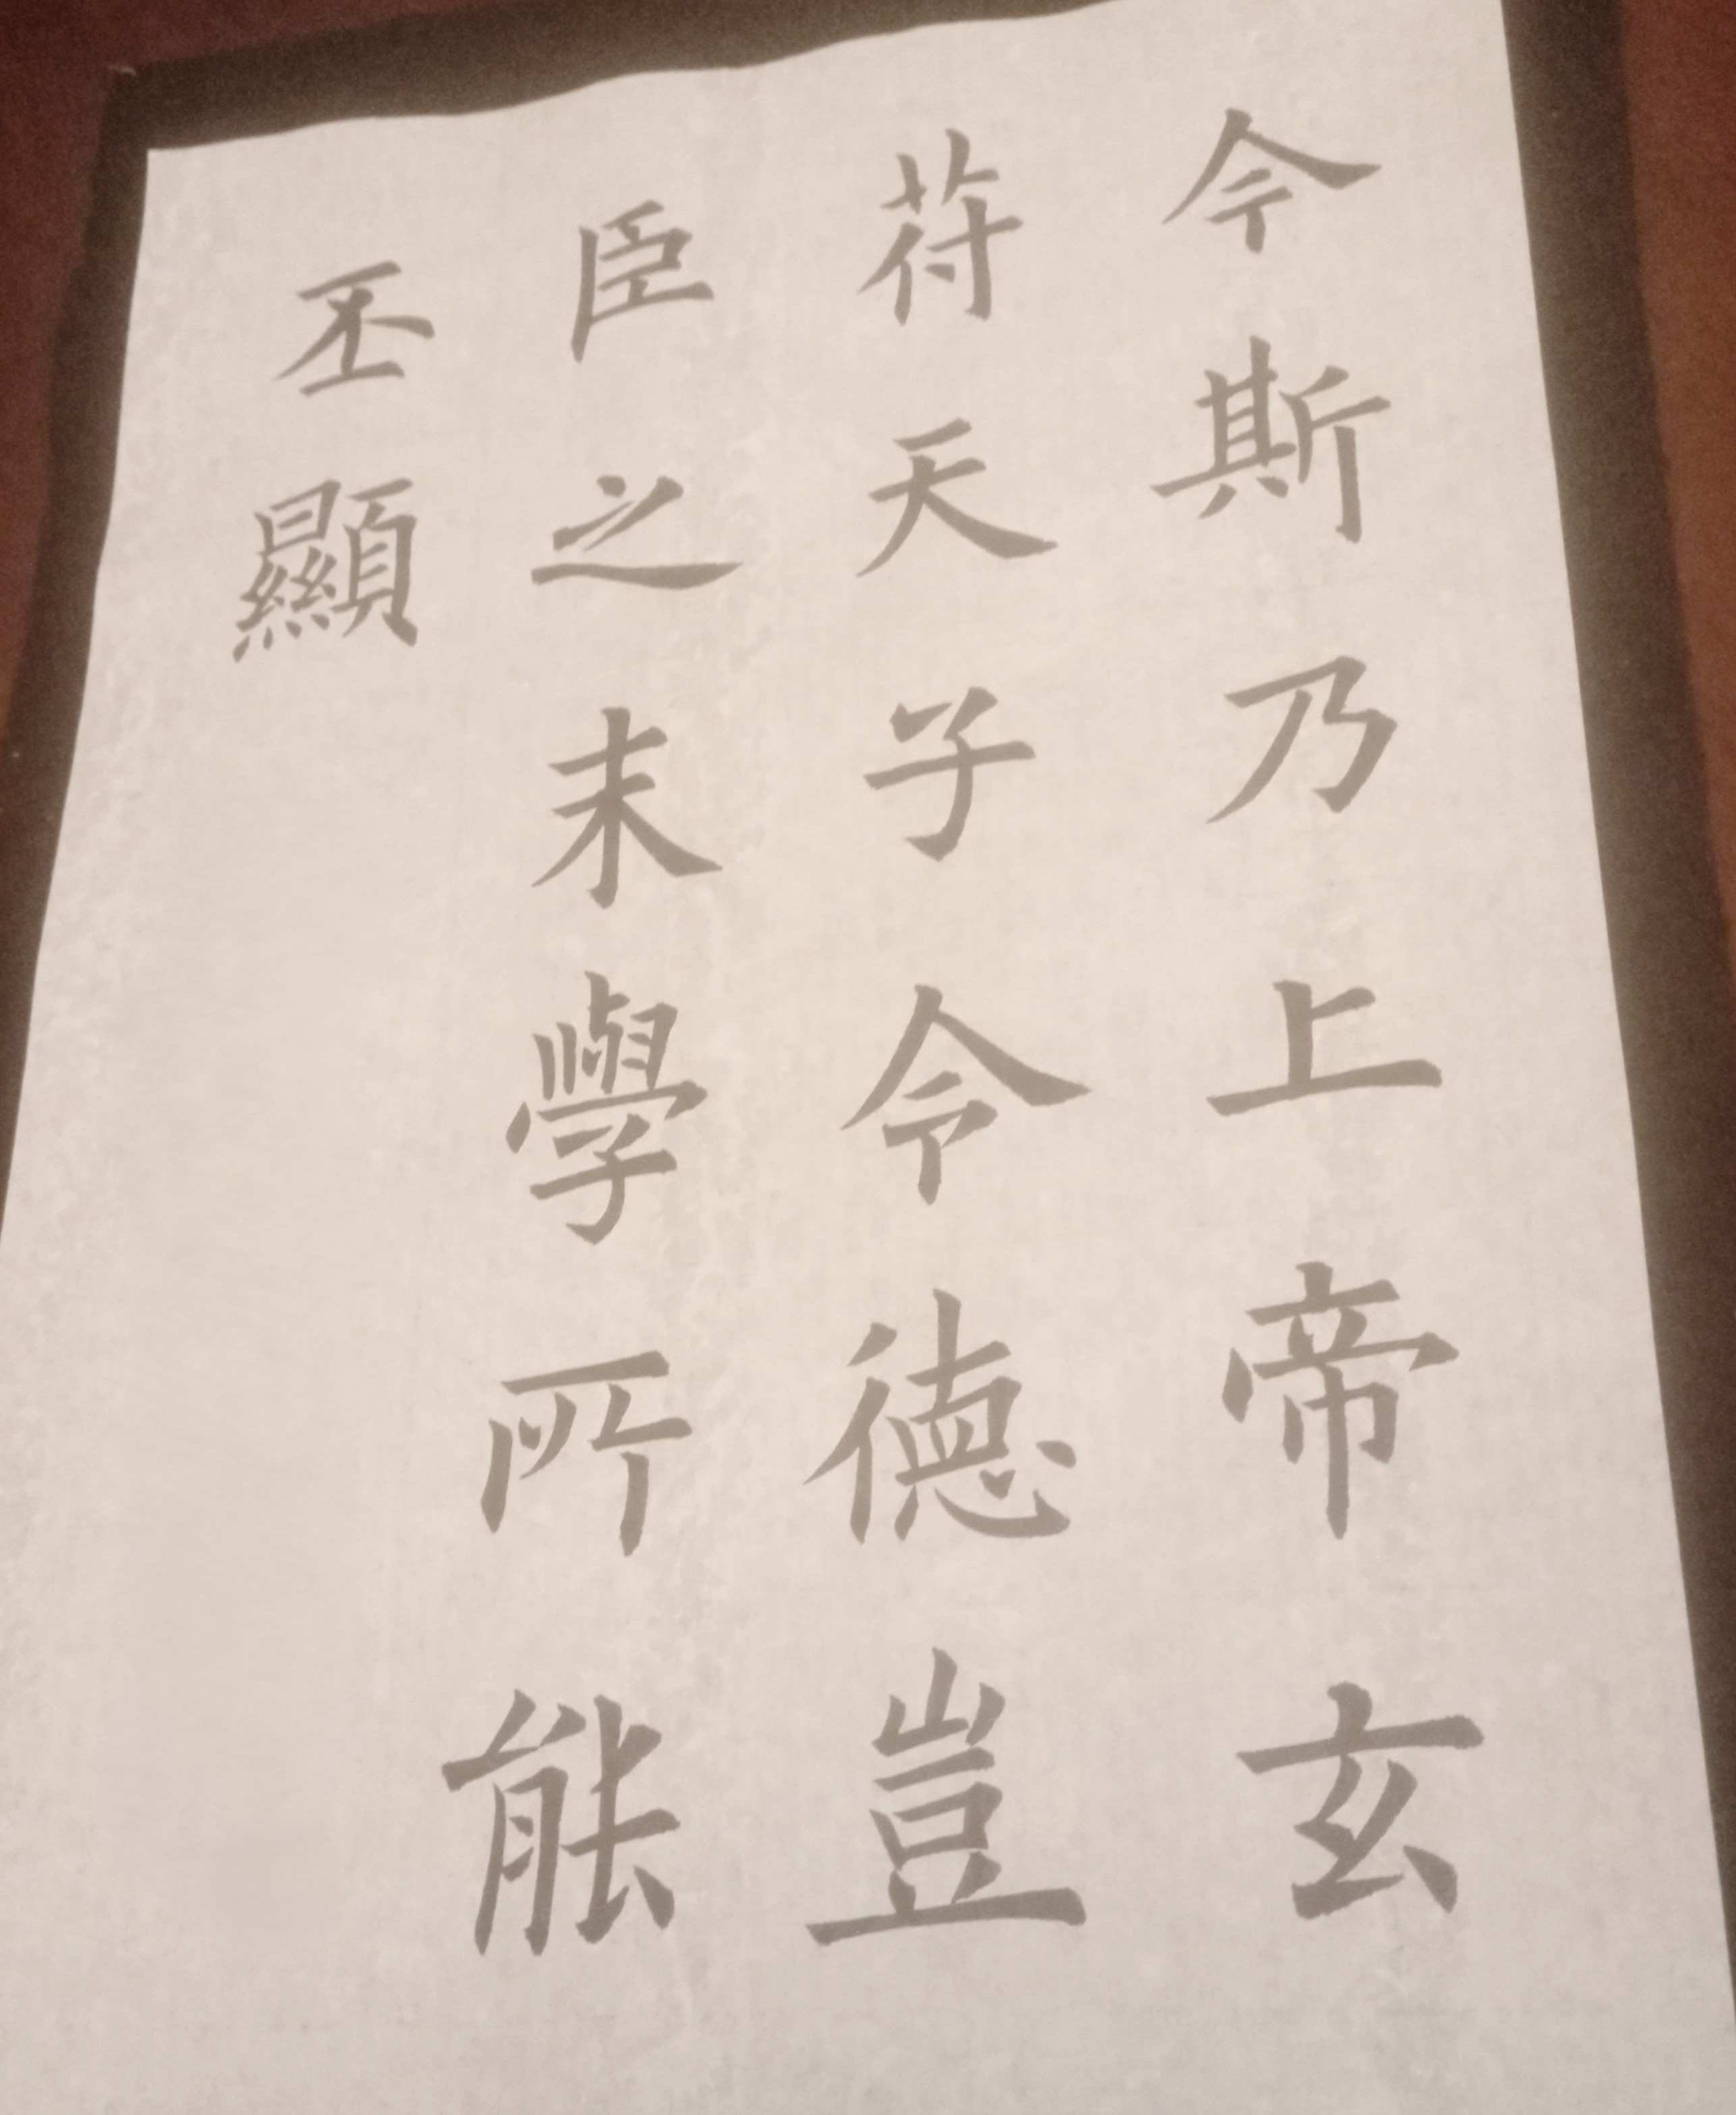 今斯乃上帝玄
苻天子令德豈
臣之末學所能
丕顯